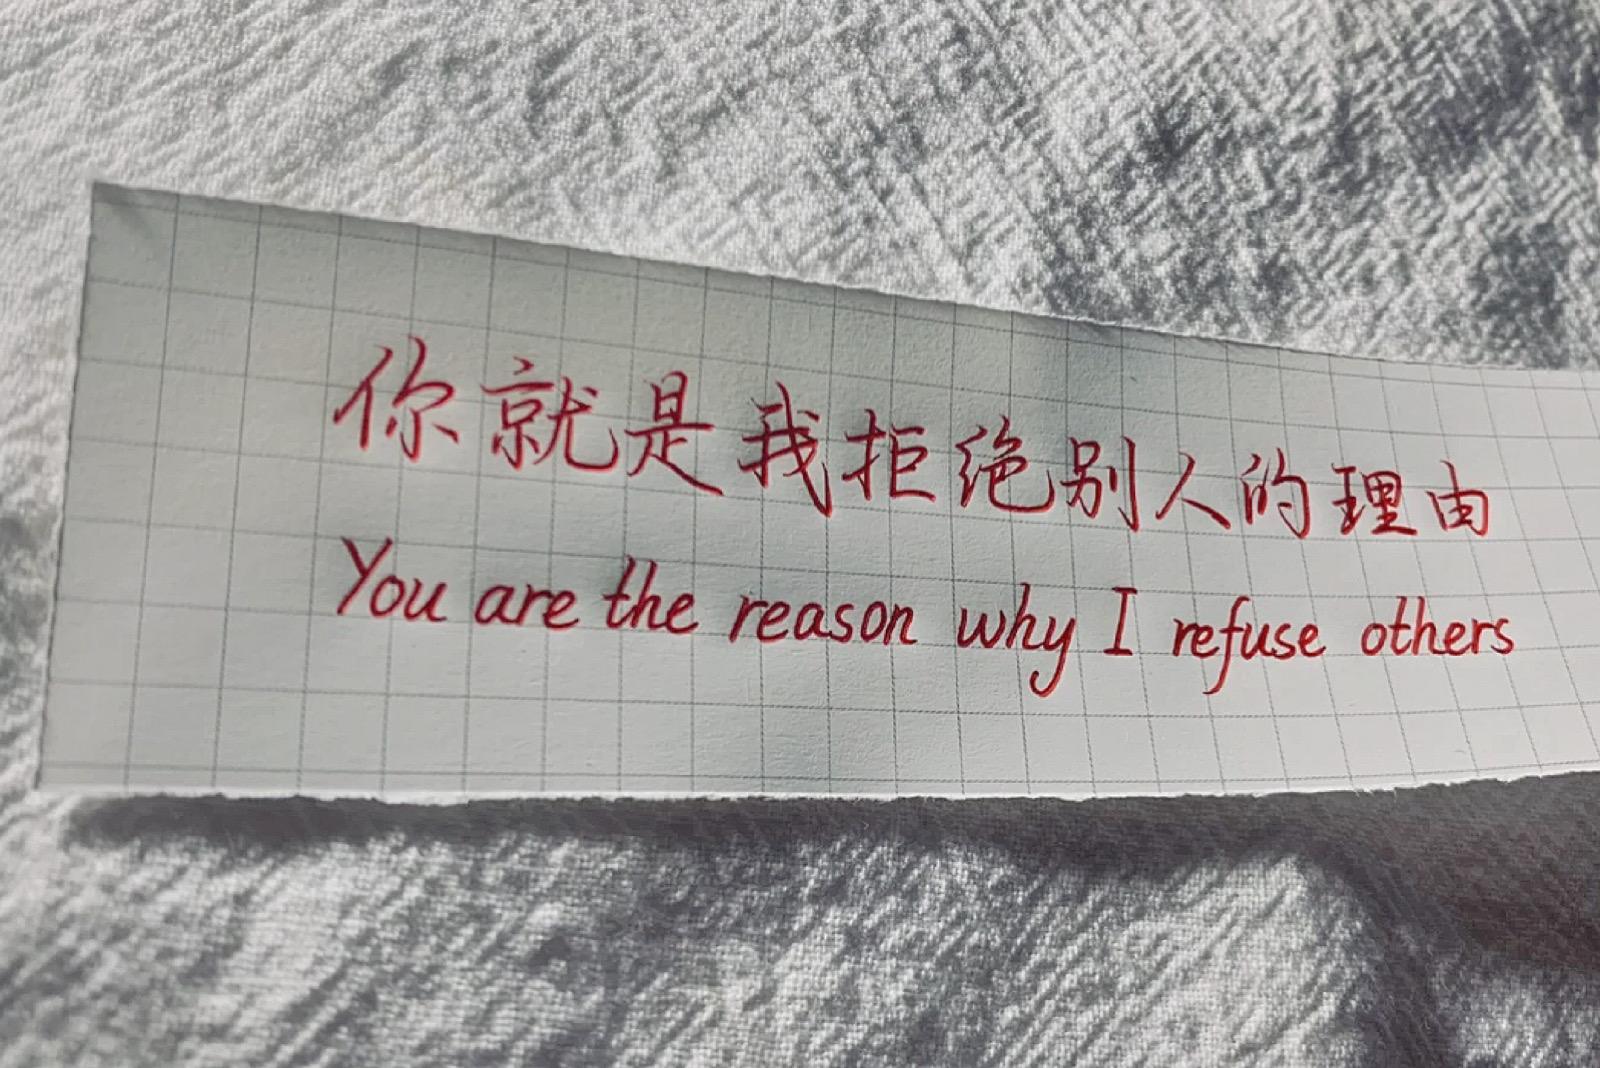 你就是我拒绝别人的理由
You are the reason why I refuse others